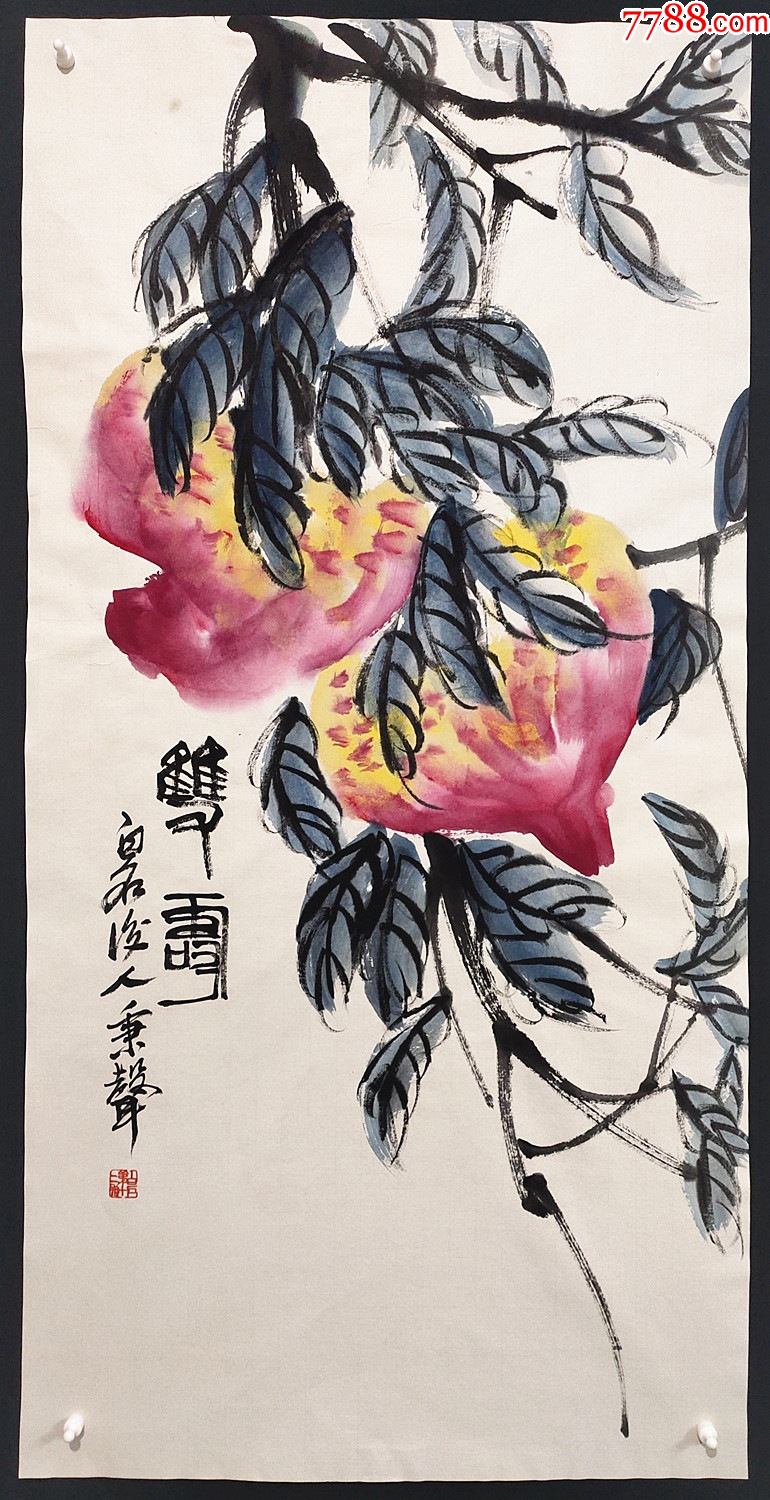 7788.com
雙壽
白石後人秉聲